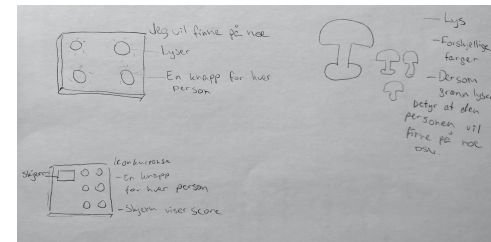 Jeg vil finne på noe
Lyser
En knapp for hver
person
- Lys
- Forskjellige
farger
- Dersom
grønn lyser
betyr at den
personen vil
finne på noe
osv.
skjerm
Konkurranse
- En knapp
for hver person
- Skjerm viser score